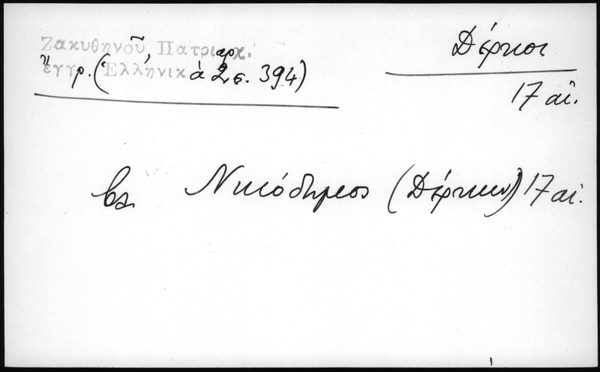 Ζακυθηνοῦ, Πατριαρχ.
ἔγγρ. (Ἑλληνικά 2 σ. 394)
Δέρκοι
17 αἰ.
βλ Νικόδημος (Δέρκων) 17 αἰ.